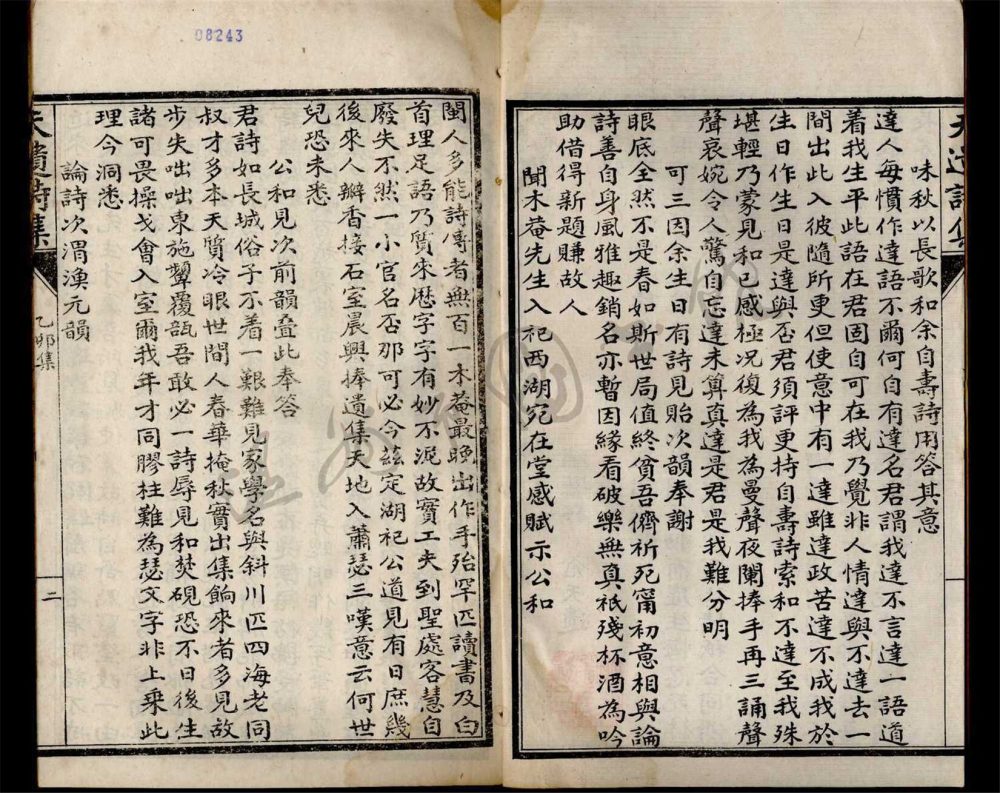 08243
味秋以長歌和余自壽詩用答其意
達人每慣作達語不爾何自有達名君謂我達不言達一語道
着我生平此語在君固自可在我乃覺非人情達與不達去一
間出此入彼隨所更但使意中有一達雖達政苦達不成我於
生日作生日是達與否君須評更持自壽詩索和不達至我殊
堪輕乃蒙見和已感極況復為我為曼聲夜闌捧手再三誦聲
聲哀婉令人驚自忘達未算真達是君是我難分明
可三因余生日有詩見貽次韻奉謝
眼底全然不是春如斯世局值終貧吾儕祈死甯初意相與論
詩善自身風雅趣銷名亦暫因緣看破樂無真祇殘杯酒為吟
助借得新題賺故人
聞木菴先生入祀西湖宛在堂感賦示公和
閩人多能詩傳者無百一木菴最晚出作手殆罕匹讀書及白
首理足語乃質來歷字字有妙不泥故實工夫到聖處容慧自
廢失不然一小官名否那可必今茲定湖祀公道見有日庶幾
後來人瓣香接石室晨興捧遺集天地入蕭瑟三嘆意云何世
兒恐未悉
公和見次前韻叠此奉答
君詩如長城俗子不着一艱難見家學名與斜川匹四海老同
叔才多本天質冷眼世間人春華掩秋實出集餉來者多見故
步失咄咄東施顰覆瓿吾敢必一詩辱見和焚硯恐不日後生
諸可畏操戈會入室爾我年才同膠柱難為瑟文字非上乘此
理今洞悉
論詩次渭漁元韻
天遺詩集
乙卯集
二